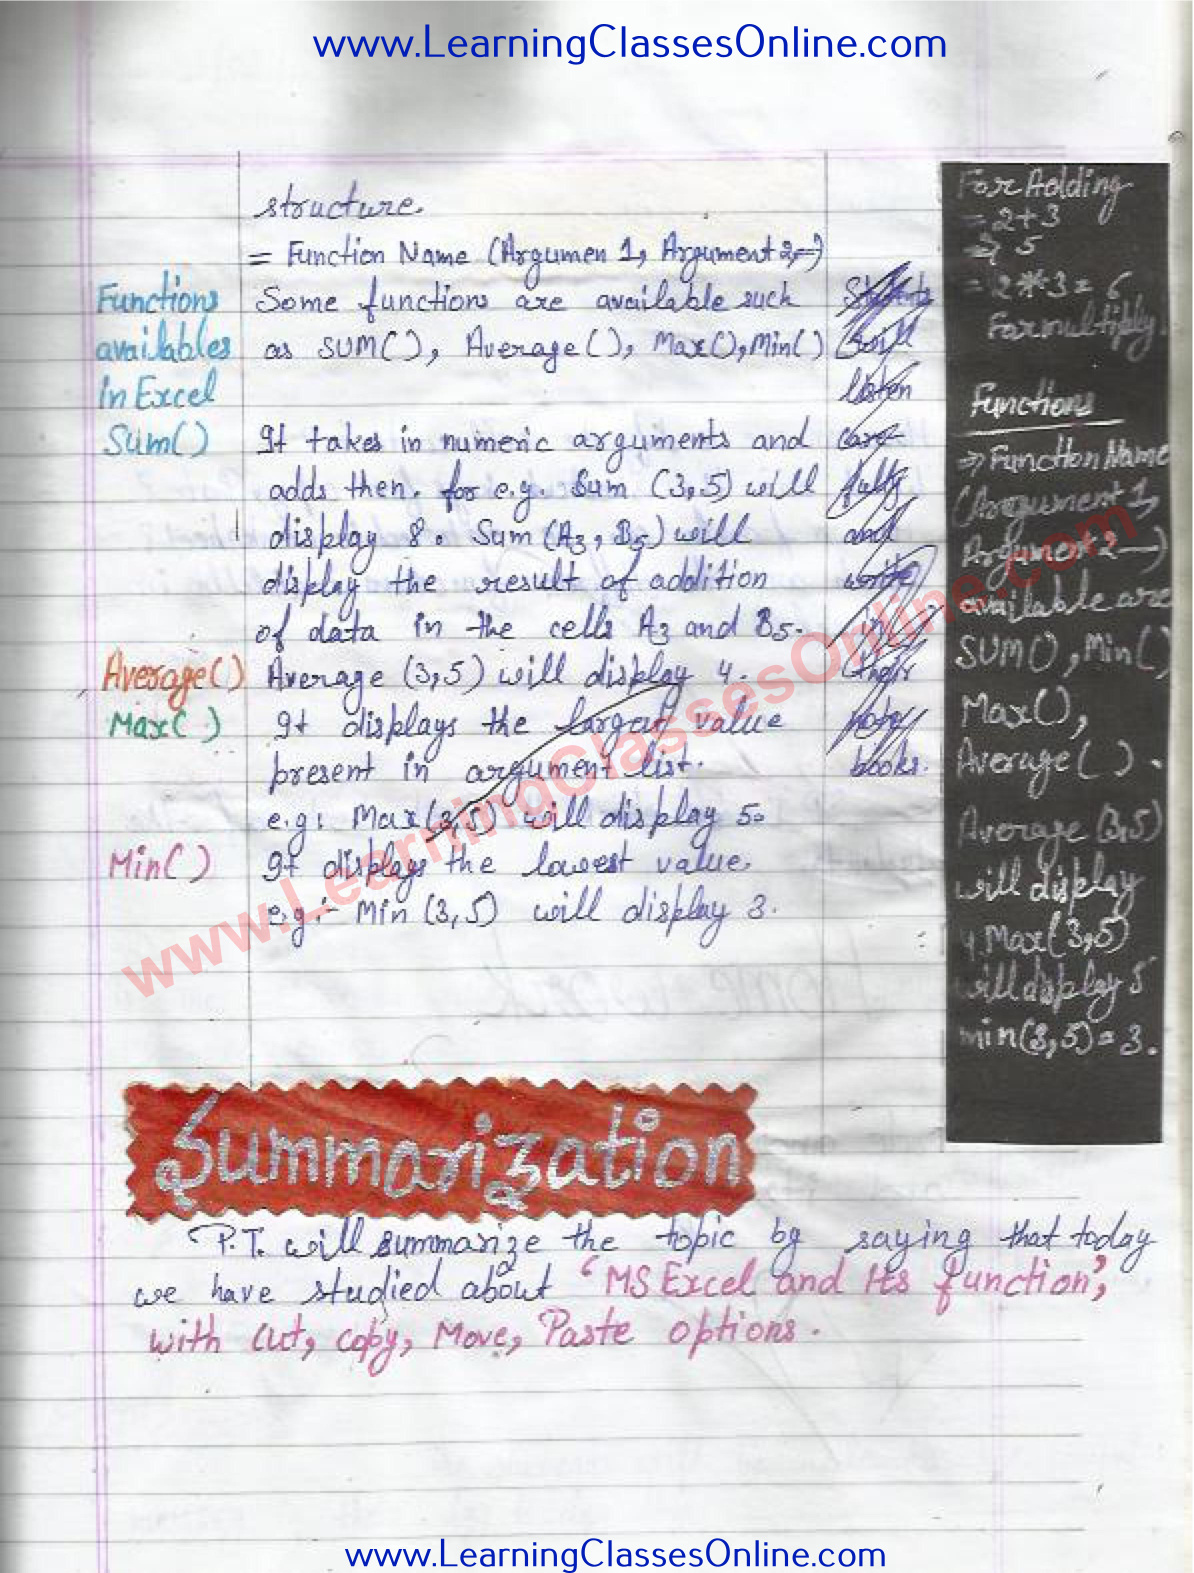 www.LearningClassesOnline.com
structure.
= Function Name (Argumen 1, Argument 2,—)
Functions
availables
in Excel
Some functions are available such
as SUM(), Average(), Max(), Min()
Sum()
It takes in numeric arguments and
adds then. for e.g. Sum (3,5) will
display 8. Sum (A3, B5) will
display the result of addition
of data in the cells A3 and B5.
Average()
Average (3,5) will display 4.
Max()
It displays the largest value
present in argument list.
e.g: Max(3,5) will display 5.
Min()
It displays the lowest value.
e.g:- Min (3,5) will display 3.
Students
will
listen
care
fully
and
write
in
their
note
books.
For Adding
= 2+3
⇒ 5
= 2*3 = 6
For multiply.
Functions
⇒ Function Name
(Argument 1,
Argumen 2 —)
available are
SUM(), Min()
Max(),
Average().
Average (3,5)
will display
4. Max(3,5)
will display 5
min(3,5) = 3.
www.LearningClassesOnline.com
Summarization
P.T. will summarize the topic by saying that today
we have studied about 'MS Excel and Its function',
with cut, copy, Move, Paste options.
www.LearningClassesOnline.com